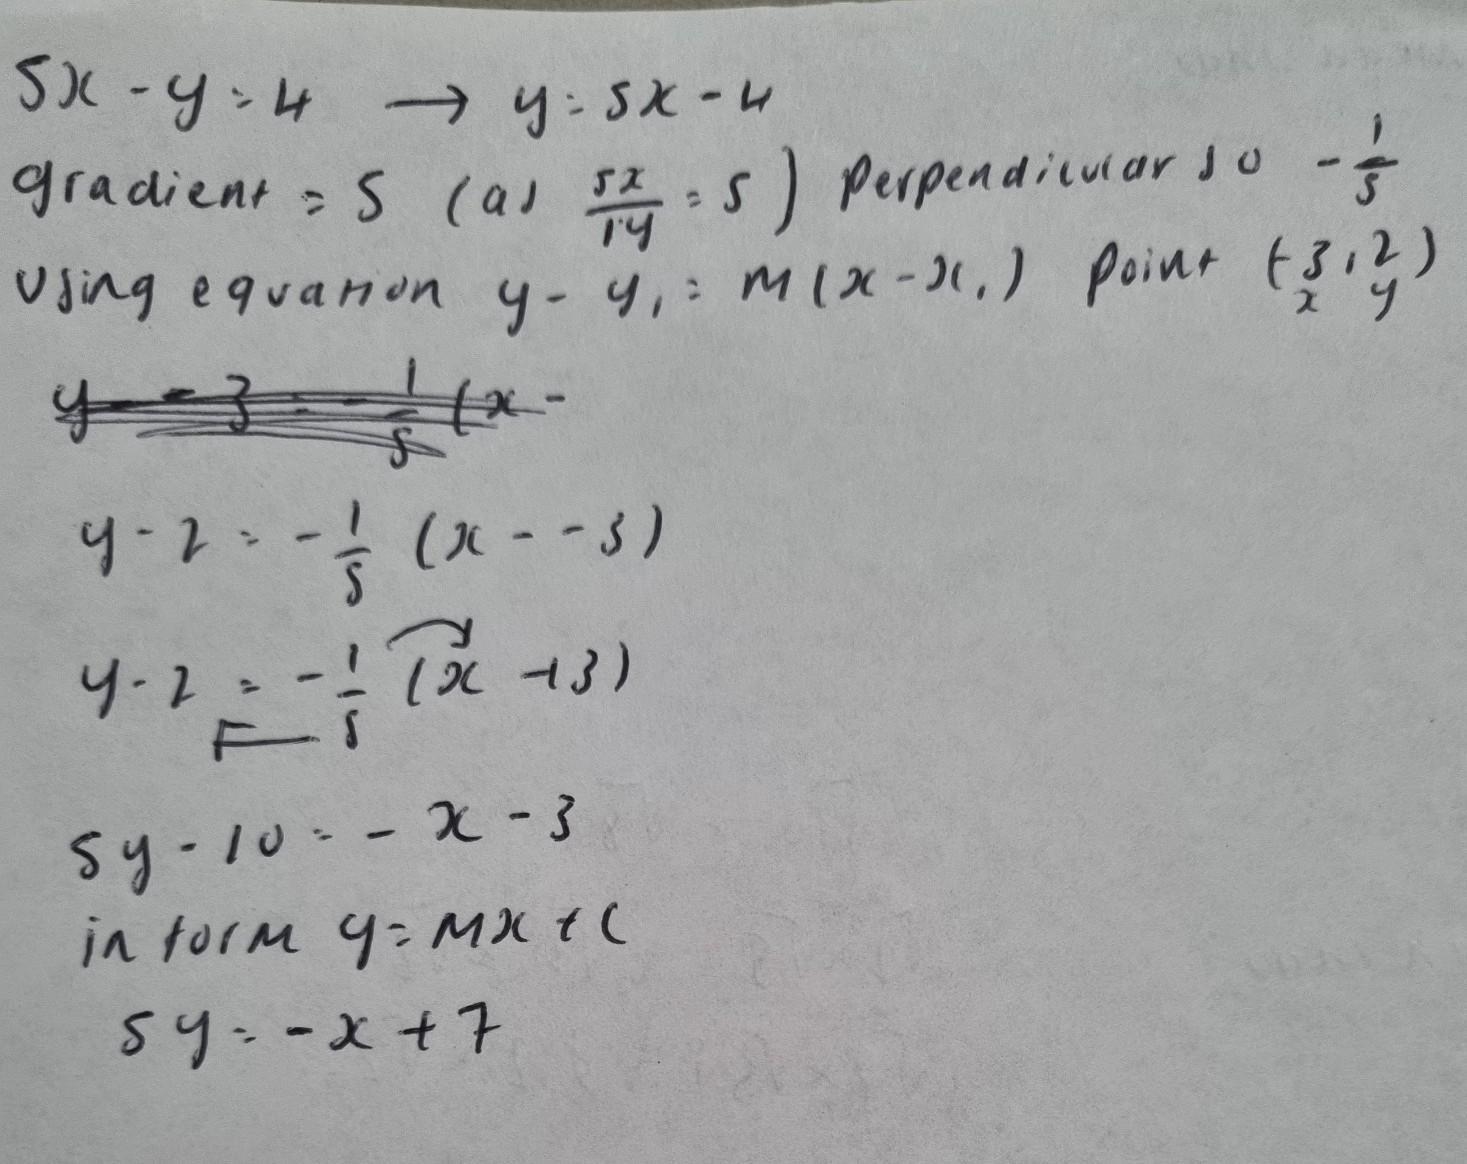 5x - y = 4 → y = 5x - 4
gradient = 5 (as 5x/1y = 5) perpendicular so -1/5
Using equation y - y₁ = m(x - x₁) point (-3, 2)
x y
y - - 3 = - 1/5 (x -
y - 2 = - 1/5 (x - - 3)
y - 2 = - 1/5 (x + 3)
5y - 10 = - x - 3
in form y = mx + c
5y = - x + 7